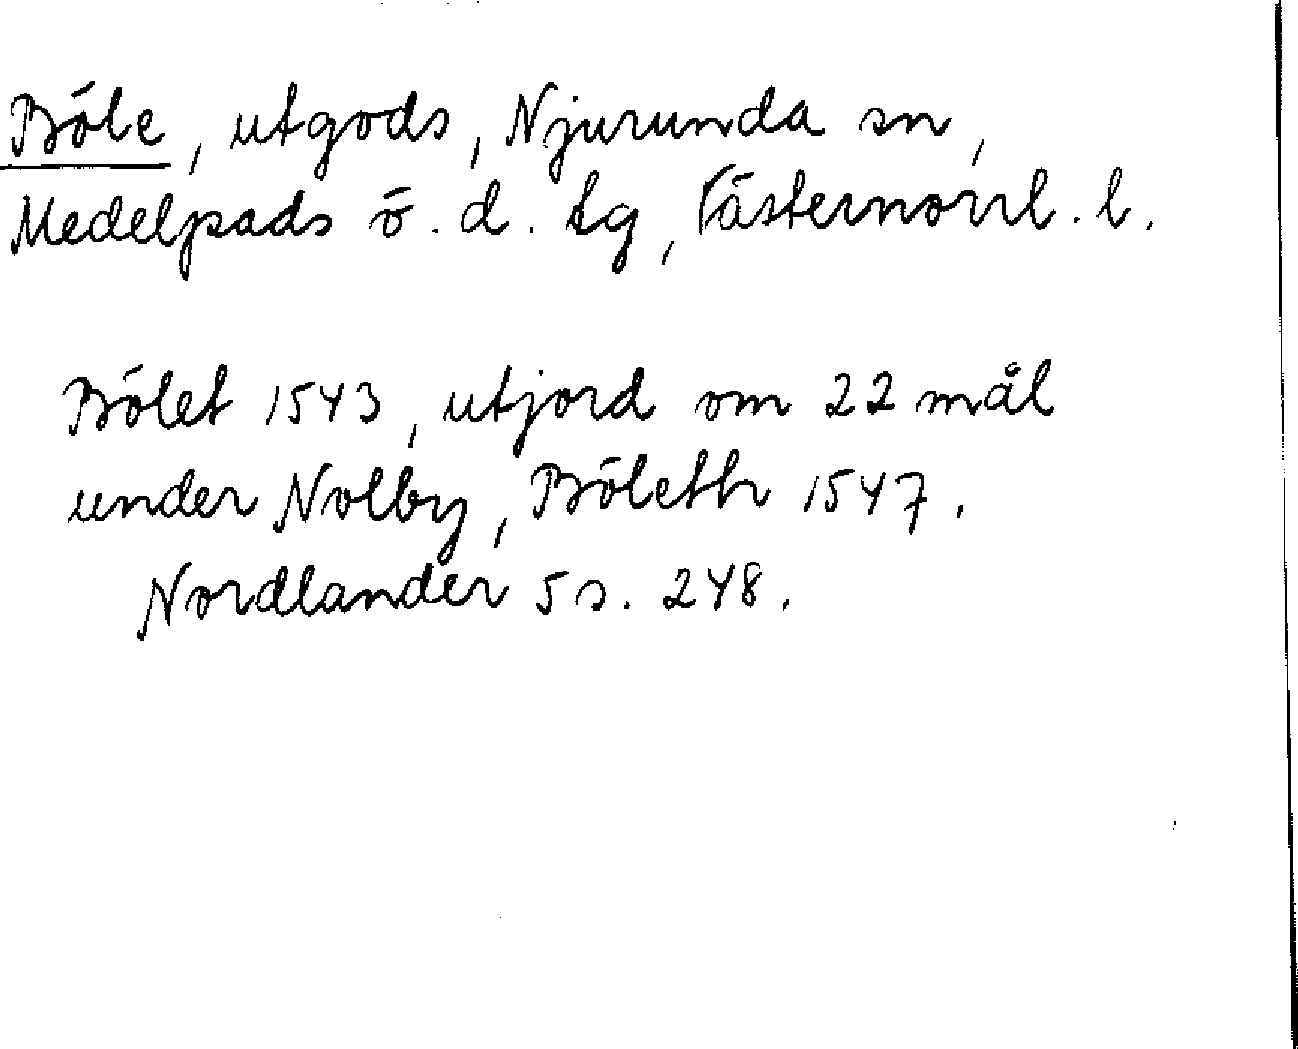 Böle, utgods, Njurunda sn,
Medelpads ö. d. tg, Västernorrl. l.
Bölet 1543, utjord om 22 mål
under Nolby, Böleth 1547.
Nordlander 5 s. 248.